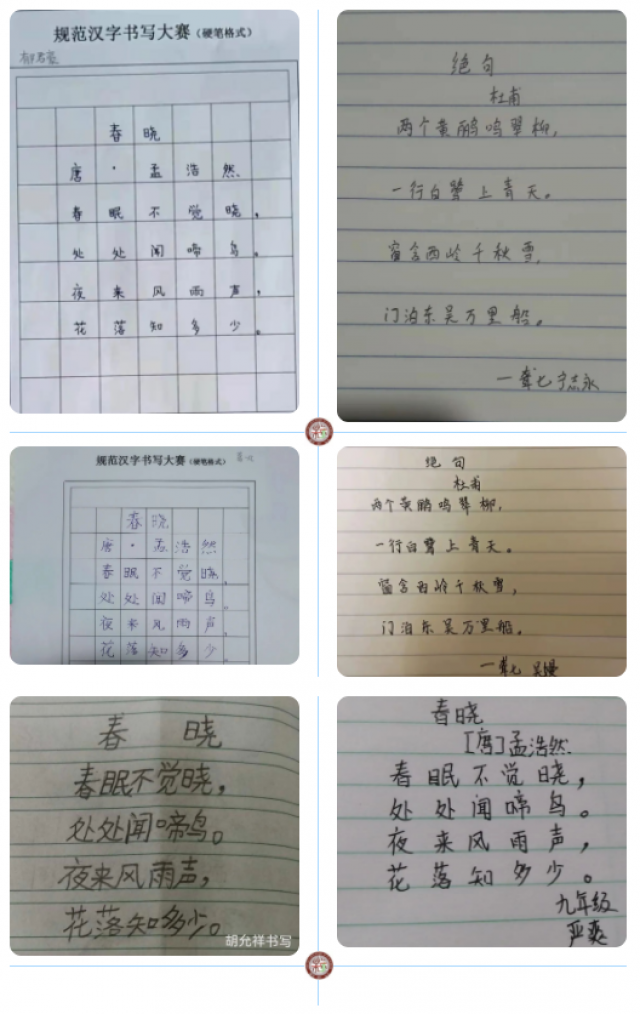 规范汉字书写大赛（硬笔格式）
郁君豪
春 晓
唐 · 孟 浩 然
春 眠 不 觉 晓，
处 处 闻 啼 鸟。
夜 来 风 雨 声，
花 落 知 多 少。
绝句
杜甫
两个黄鹂鸣翠柳，
一行白鹭上青天。
窗含西岭千秋雪，
门泊东吴万里船。
一聋七 宁志永
规范汉字书写大赛（硬笔格式）
春 晓
唐 · 孟 浩 然
春 眠 不 觉 晓，
处 处 闻 啼 鸟。
夜 来 风 雨 声，
花 落 知 多 少。
绝 句
杜甫
两个黄鹂鸣翠柳，
一行白鹭上青天。
窗含西岭千秋雪，
门泊东吴万里船。
一聋七
春 晓
春眠不觉晓，
处处闻啼鸟。
夜来风雨声，
花落知多少。
胡允祥书写
春晓
[唐]孟浩然
春眠不觉晓，
处处闻啼鸟。
夜来风雨声，
花落知多少。
九年级
严爽